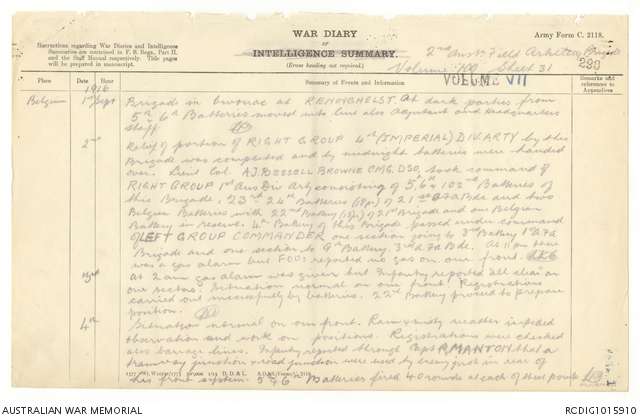 WAR DIARY
or
INTELLIGENCE SUMMARY.
(Erase heading not required.)
Army Form C. 2118.
Instructions regarding War Diaries and Intelligence
Summaries are contained in F. S. Regs., Part II.
and the Staff Manual respectively. Title pages
will be prepared in manuscript.
2nd Aust Field Artillery Brigade
Volume Sheet 31
VOLUME VII
Place
Date
Summary of Events and Information
Remarks and
references to
Appendices
1916
Belgium 1st Sept Brigade in bivouac at RENINGHELST. At dark parties from
5th & 6th Batteries moved into line also Adjutant and Headquarters
Staff
2nd Relief of portion of RIGHT GROUP 4th (IMPERIAL) DIV. ARTY by this
Brigade was completed and by midnight batteries were handed
over. Lieut Col. A.J. BESSELL BROWNE CMG. DSO. took command of
RIGHT GROUP 1st Aus Div Arty consisting of 5th, 6th & 102nd Batteries of
this Brigade, 23rd & 24th Batteries of 21st Bde and two
Belgian Batteries with 22nd Battery of 21st Brigade and one Belgian
Battery in reserve. 4th Battery of this Brigade passed under command
of LEFT GROUP COMMANDER one section going to 3rd Battery 1st
Brigade and one section to 9th Battery, 3rd Bde. At there
was a gas alarm but FOOs reported no gas on our front.
3rd At 2 am gas alarm was given but Infantry reported all clear on
our sectors. Situation normal on our front. Registrations
carried out successfully by batteries. 22nd Battery proceed to prepare
position.
4th Situation normal on our front. Rain & misty weather impeded
observation and work on positions. Registrations were checked
also barrage lines. Infantry reported through Capt R MANTON that a
tramway junction road junction were used by enemy just in rear of
his front system. 5th & 6th Batteries fired 40 rounds at each of these points